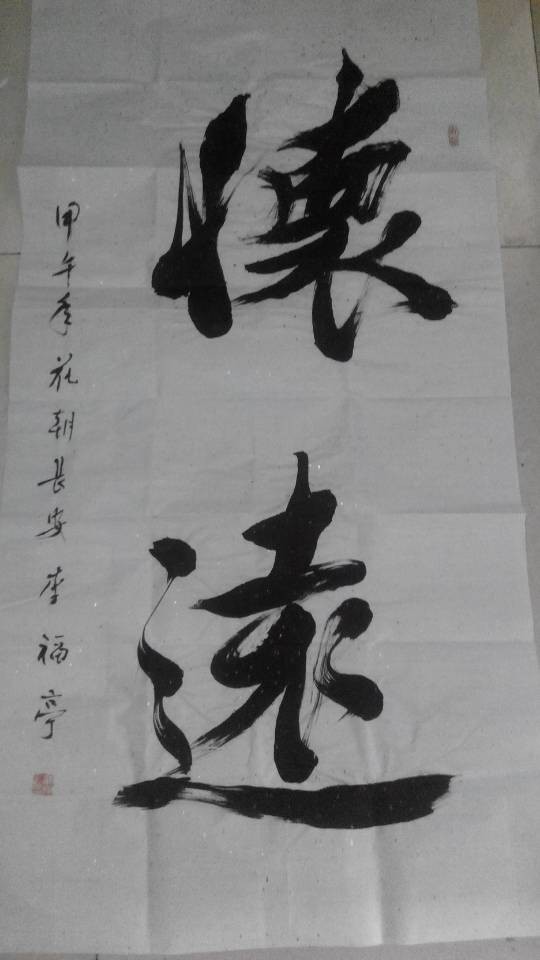 懷遠
甲午年花朝長安李福亭